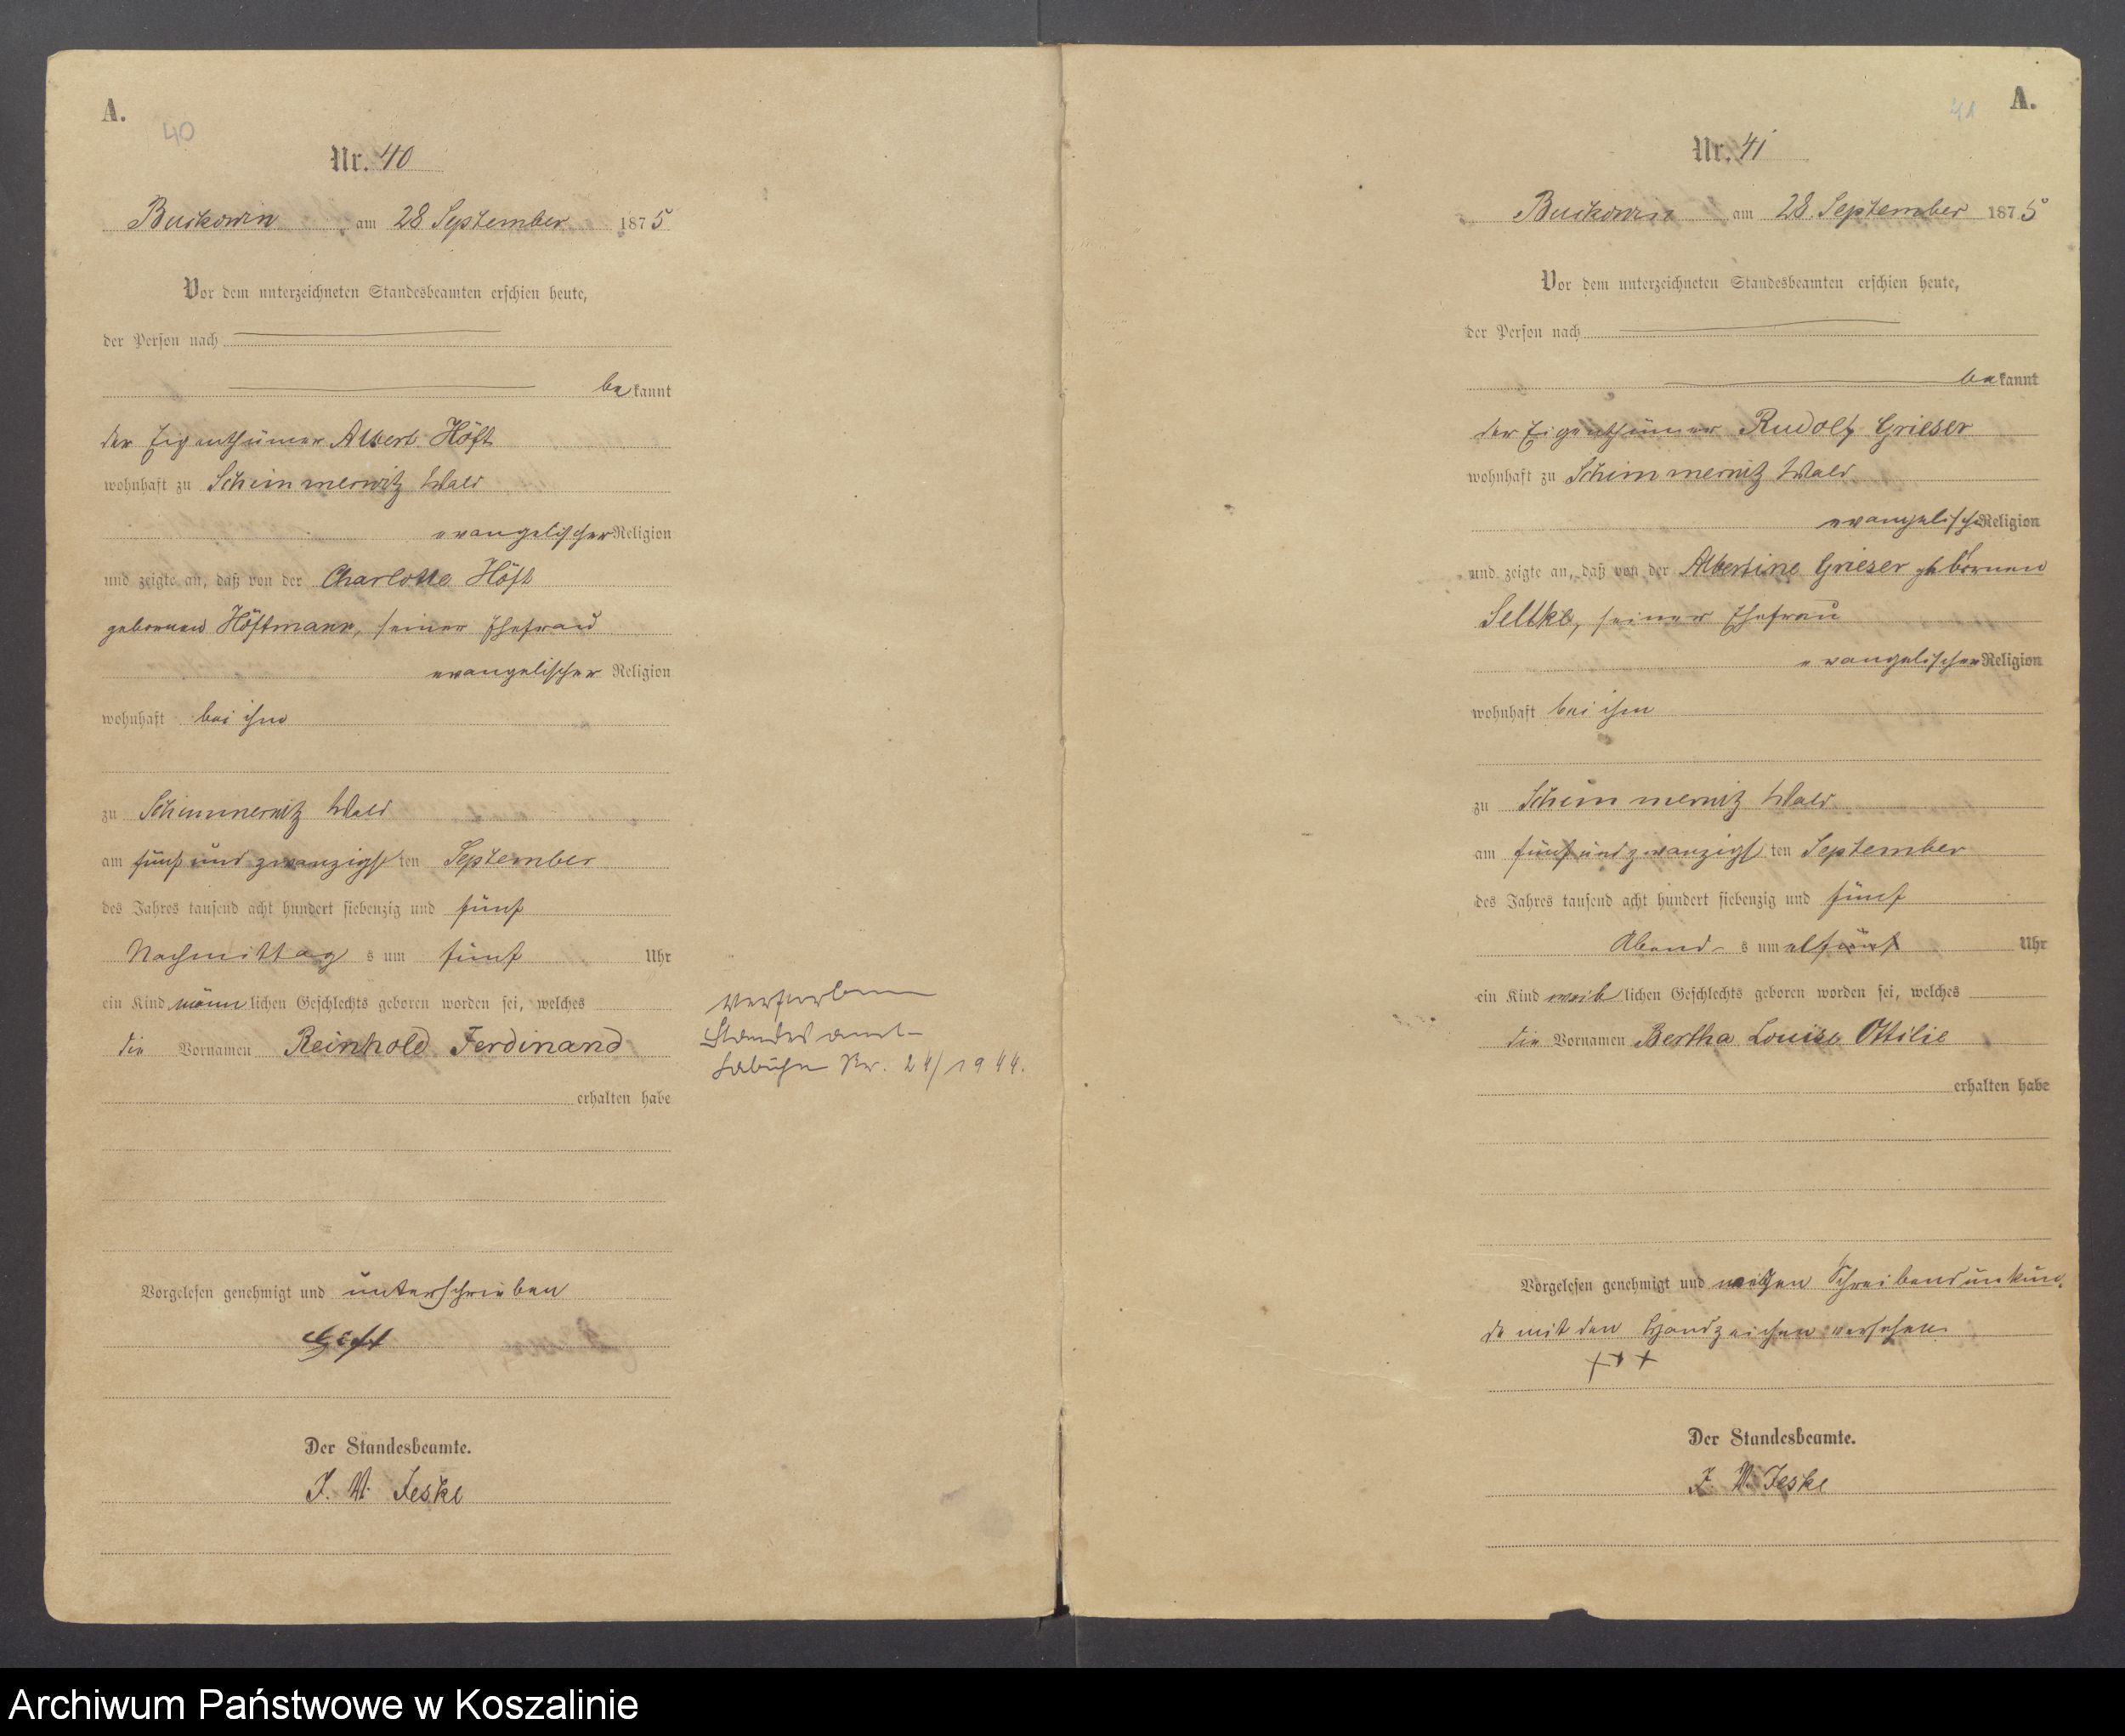 A.
40
Nr. 40
Buckowin am 28 September 1875
Vor dem unterzeichneten Standesbeamten erschien heute,
der Person nach
bekannt
der Eigenthümer Albert Höft
wohnhaft zu Schimmerwitz Wald
evangelischer Religion
und zeigte an, daß von der Charlotte Höft
gebornen Höftmann, seiner Ehefrau
evangelischer Religion
wohnhaft bei ihm
zu Schimmerwitz Wald
am fünf und zwanzigsten September
des Jahres tausend acht hundert siebenzig und fünf
Nachmittags um fünf Uhr
ein Kind männlichen Geschlechts geboren worden sei, welches
die Vornamen Reinhold Ferdinand
erhalten habe
Vorgelesen genehmigt und unterschrieben
Höft
Der Standesbeamte.
F. W. Jeske
verstorben
Standesamt
Labuhn Nr. 24/1944.
A.
41
Nr. 41
Buckowin am 28. September 1875
Vor dem unterzeichneten Standesbeamten erschien heute,
der Person nach
bekannt
der Eigenthümer Rudolf Grieser
wohnhaft zu Schimmerwitz Wald
evangelischer Religion
und zeigte an, daß von der Albertine Grieser gebornen
Seltke, seiner Ehefrau
evangelischer Religion
wohnhaft bei ihm
zu Schimmerwitz Wald
am fünf und zwanzigsten September
des Jahres tausend acht hundert siebenzig und fünf
Abends um elf Uhr
ein Kind weiblichen Geschlechts geboren worden sei, welches
die Vornamen Bertha Louise Ottilie
erhalten habe
Vorgelesen genehmigt und wegen Schreibensunkun-
de mit den Handzeichen versehen
+++
Der Standesbeamte.
F. W. Jeske
Archiwum Państwowe w Koszalinie